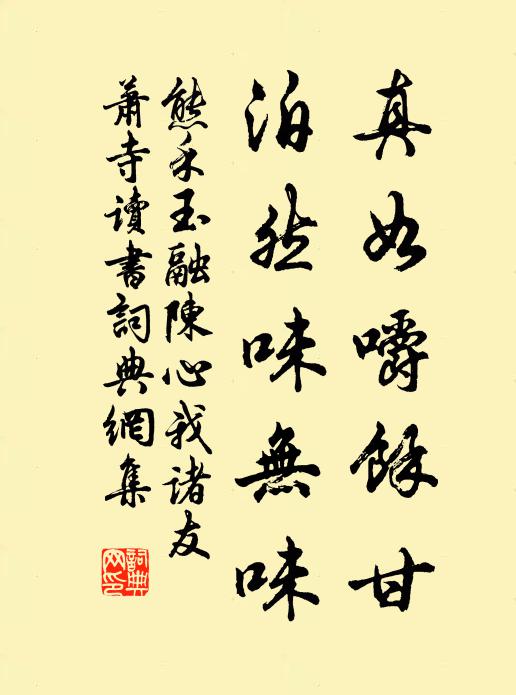 真如嚼餘甘
泊然味無味
熊禾玉融陳心我諸友
蕭寺讀書詞典網集
詞典网印